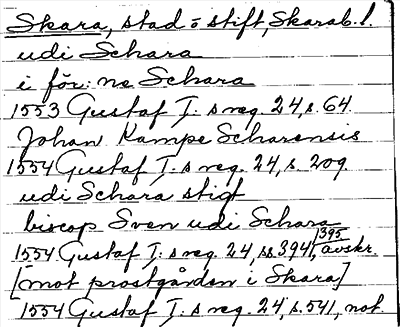 Skara, stad o stift, Skarab. l.
udi Schara
i för: ne Schara
1553 Gustaf I: s reg. 24, s. 64.
Johan Kampe Scharensis
1554 Gustaf I: s reg. 24, s. 209.
udi Schara stigt
biscop Sven udi Schara
1554 Gustaf I: s reg. 24, ss. 394, 395, avskr.
[mot prostgården i Skara]
1554 Gustaf I: s reg. 24, s. 541, not.